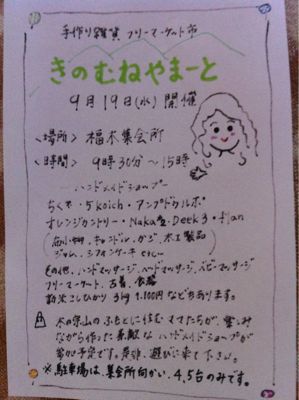 手作り雑貨 フリーマーケット市
きのむねやまーと
9月19日(水) 開催
〈場所〉 福木集会所
〈時間〉 9時30分〜15時
ハンドメイドショップ
ちくちく・5koich・アンプドゥルポ
オレンジカントリー・Naka屋・Deek3・flan
布小物、キャンドル、かご、木工製品
ジャム、シフォンケーキ etc
その他、ハンドマッサージ、ヘッドマッサージ、ベビーマッサージ
フリーマーケット、古着、食器
新米こしひかり 3kg 1,100円などもあります。
木の宗山のふもとに住むママたちが、楽しみ
ながら作った素敵なハンドメイドショップが
予定です。是非、遊びに来て下さい。
※駐車場は、集会所向かい、4,5台のみです。